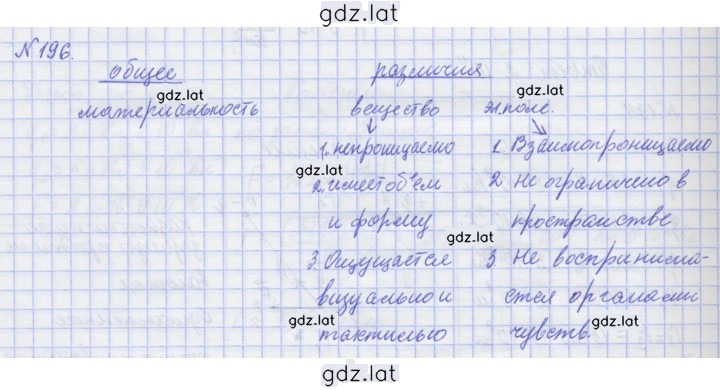 gdz.lat
№196.
общее различия.
gdz.lat
материальность вещество эл. поле.
gdz.lat
1. непроницаемо 1. Взаимопроницаемо
gdz.lat
2. имеет объем 2. Не ограничено в
и форму пространстве
gdz.lat
3. Ощущается 3. Не воспринима-
визуально и ется органами
gdz.lat gdz.lat
тактильно чувств.
gdz.lat